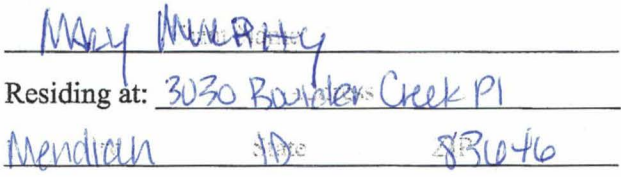 Mary Murphy
Residing at: 3030 Boulder Creek Pl
Meridian ID 83646